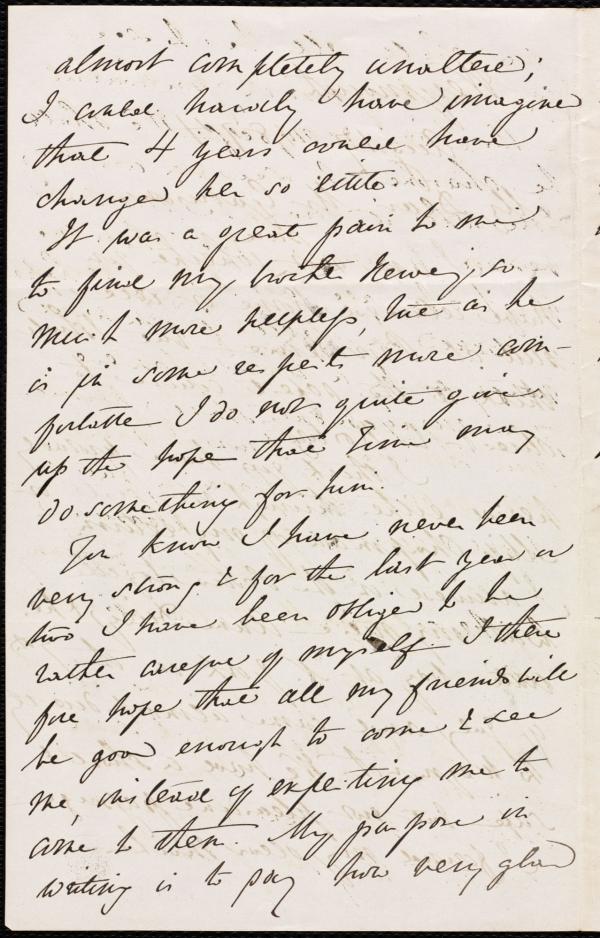 almost completely unaltered;
I could hardly have imagined
that 4 years could have
changed her so little
It was a great pain to me
to find my brother Hervey so
much more helpless, but as he
is in some respects more com-
fortable I do not quite give
up the hope that Time may
do something for him.
You know I have never been
very strong & for the last year or
two I have been obliged to be
rather careful of myself. I there
fore hope that all my friends will
be good enough to come & see
me, instead of expecting me to
come to them. My purpose in
writing is to say how very glad